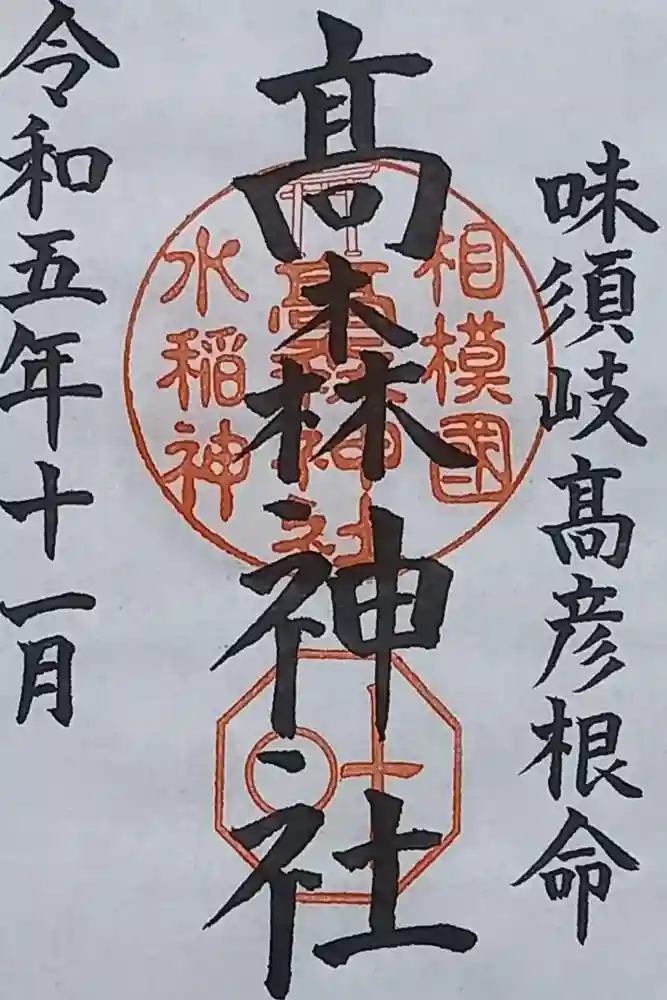 味須岐髙彦根命
髙森神社
相模國
水稲神
令和五年十一月